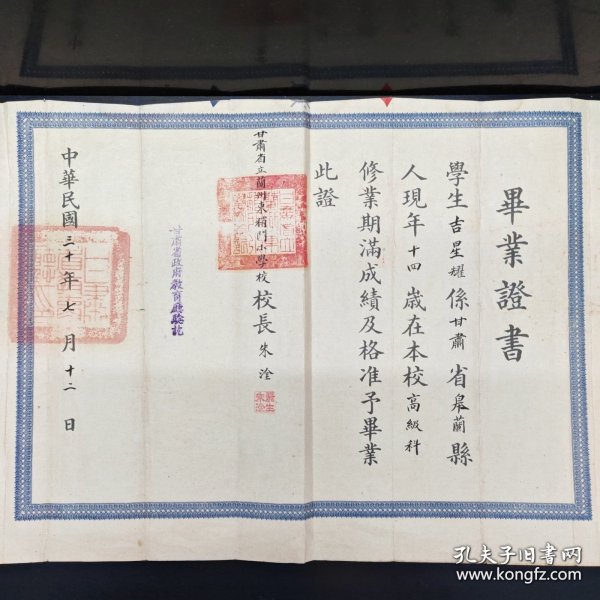 畢業證書
學生吉星耀係甘肅省皋蘭縣
人現年十四歲在本校高級科
修業期滿成績及格准予畢業
此證
甘肅省立蘭州東稍門小學校校長朱淦
甘肅省政府教育廳驗訖
中華民國三十年七月十二日
孔夫子旧书网
www.kongfz.com